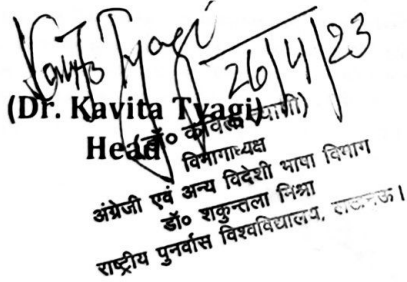 Kavita Tyagi
26/4/23
(Dr. Kavita Tyagi)
(डॉ० कविता त्यागी)
Head
विभागाध्यक्ष
अंग्रेजी एवं अन्य विदेशी भाषा विभाग
डॉ० शकुन्तला मिश्रा
राष्ट्रीय पुनर्वास विश्वविद्यालय, लखनऊ।